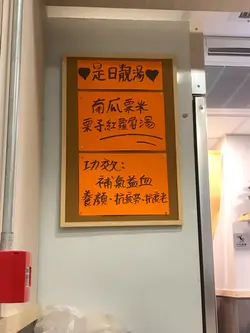 足日靚湯
南瓜粟米
栗子紅蘿蔔湯
功效:
補氣益血
養顏、抗疲勞、抗衰老